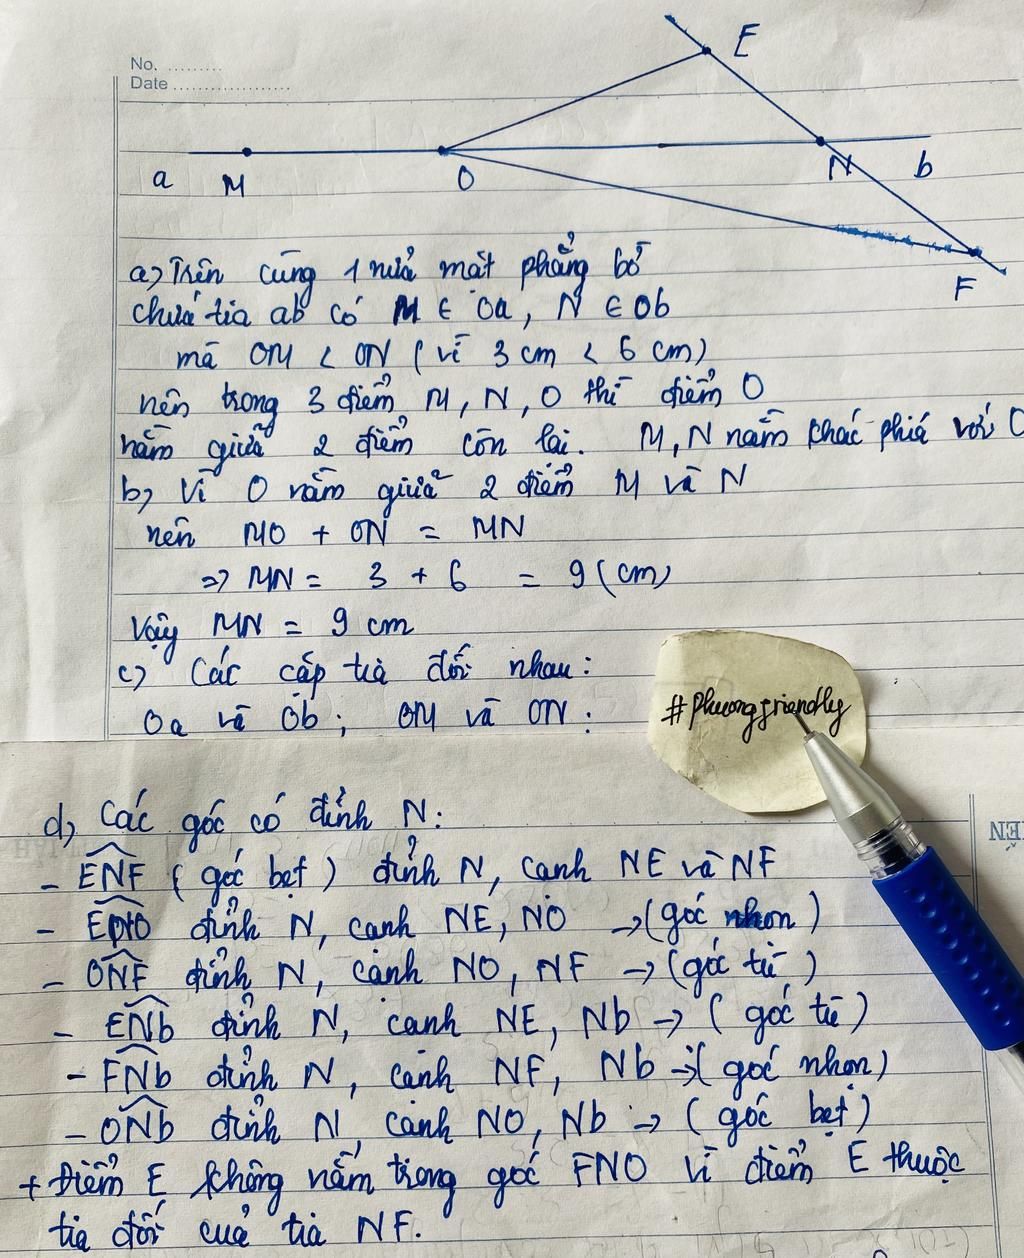 No. .........
Date ....................
E
a M O N b
F
a) Trên cùng 1 nửa mặt phẳng bờ
chứa tia ab có M ∈ Oa, N ∈ Ob
mà OM < ON (vì 3 cm < 6 cm)
nên trong 3 điểm M, N, O thì điểm O
nằm giữa 2 điểm còn lại. M, N nằm khác phía với O
b) Vì O nằm giữa 2 điểm M và N
nên MO + ON = MN
=> MN = 3 + 6 = 9 (cm)
Vậy MN = 9 cm
c) Các cặp tia đối nhau:
Oa và Ob; OM và ON;
#Phuongfriendly
d) Các góc có đỉnh N:
- ENF (góc bẹt) đỉnh N, cạnh NE và NF
- ENO đỉnh N, cạnh NE, NO → (góc nhọn)
- ONF đỉnh N, cạnh NO, NF → (góc tù)
- ENb đỉnh N, cạnh NE, Nb → (góc tù)
- FNb đỉnh N, cạnh NF, Nb → (góc nhọn)
- ONb đỉnh N, cạnh NO, Nb → (góc bẹt)
+ Điểm E không nằm trong góc FNO vì điểm E thuộc
tia đối của tia NF.